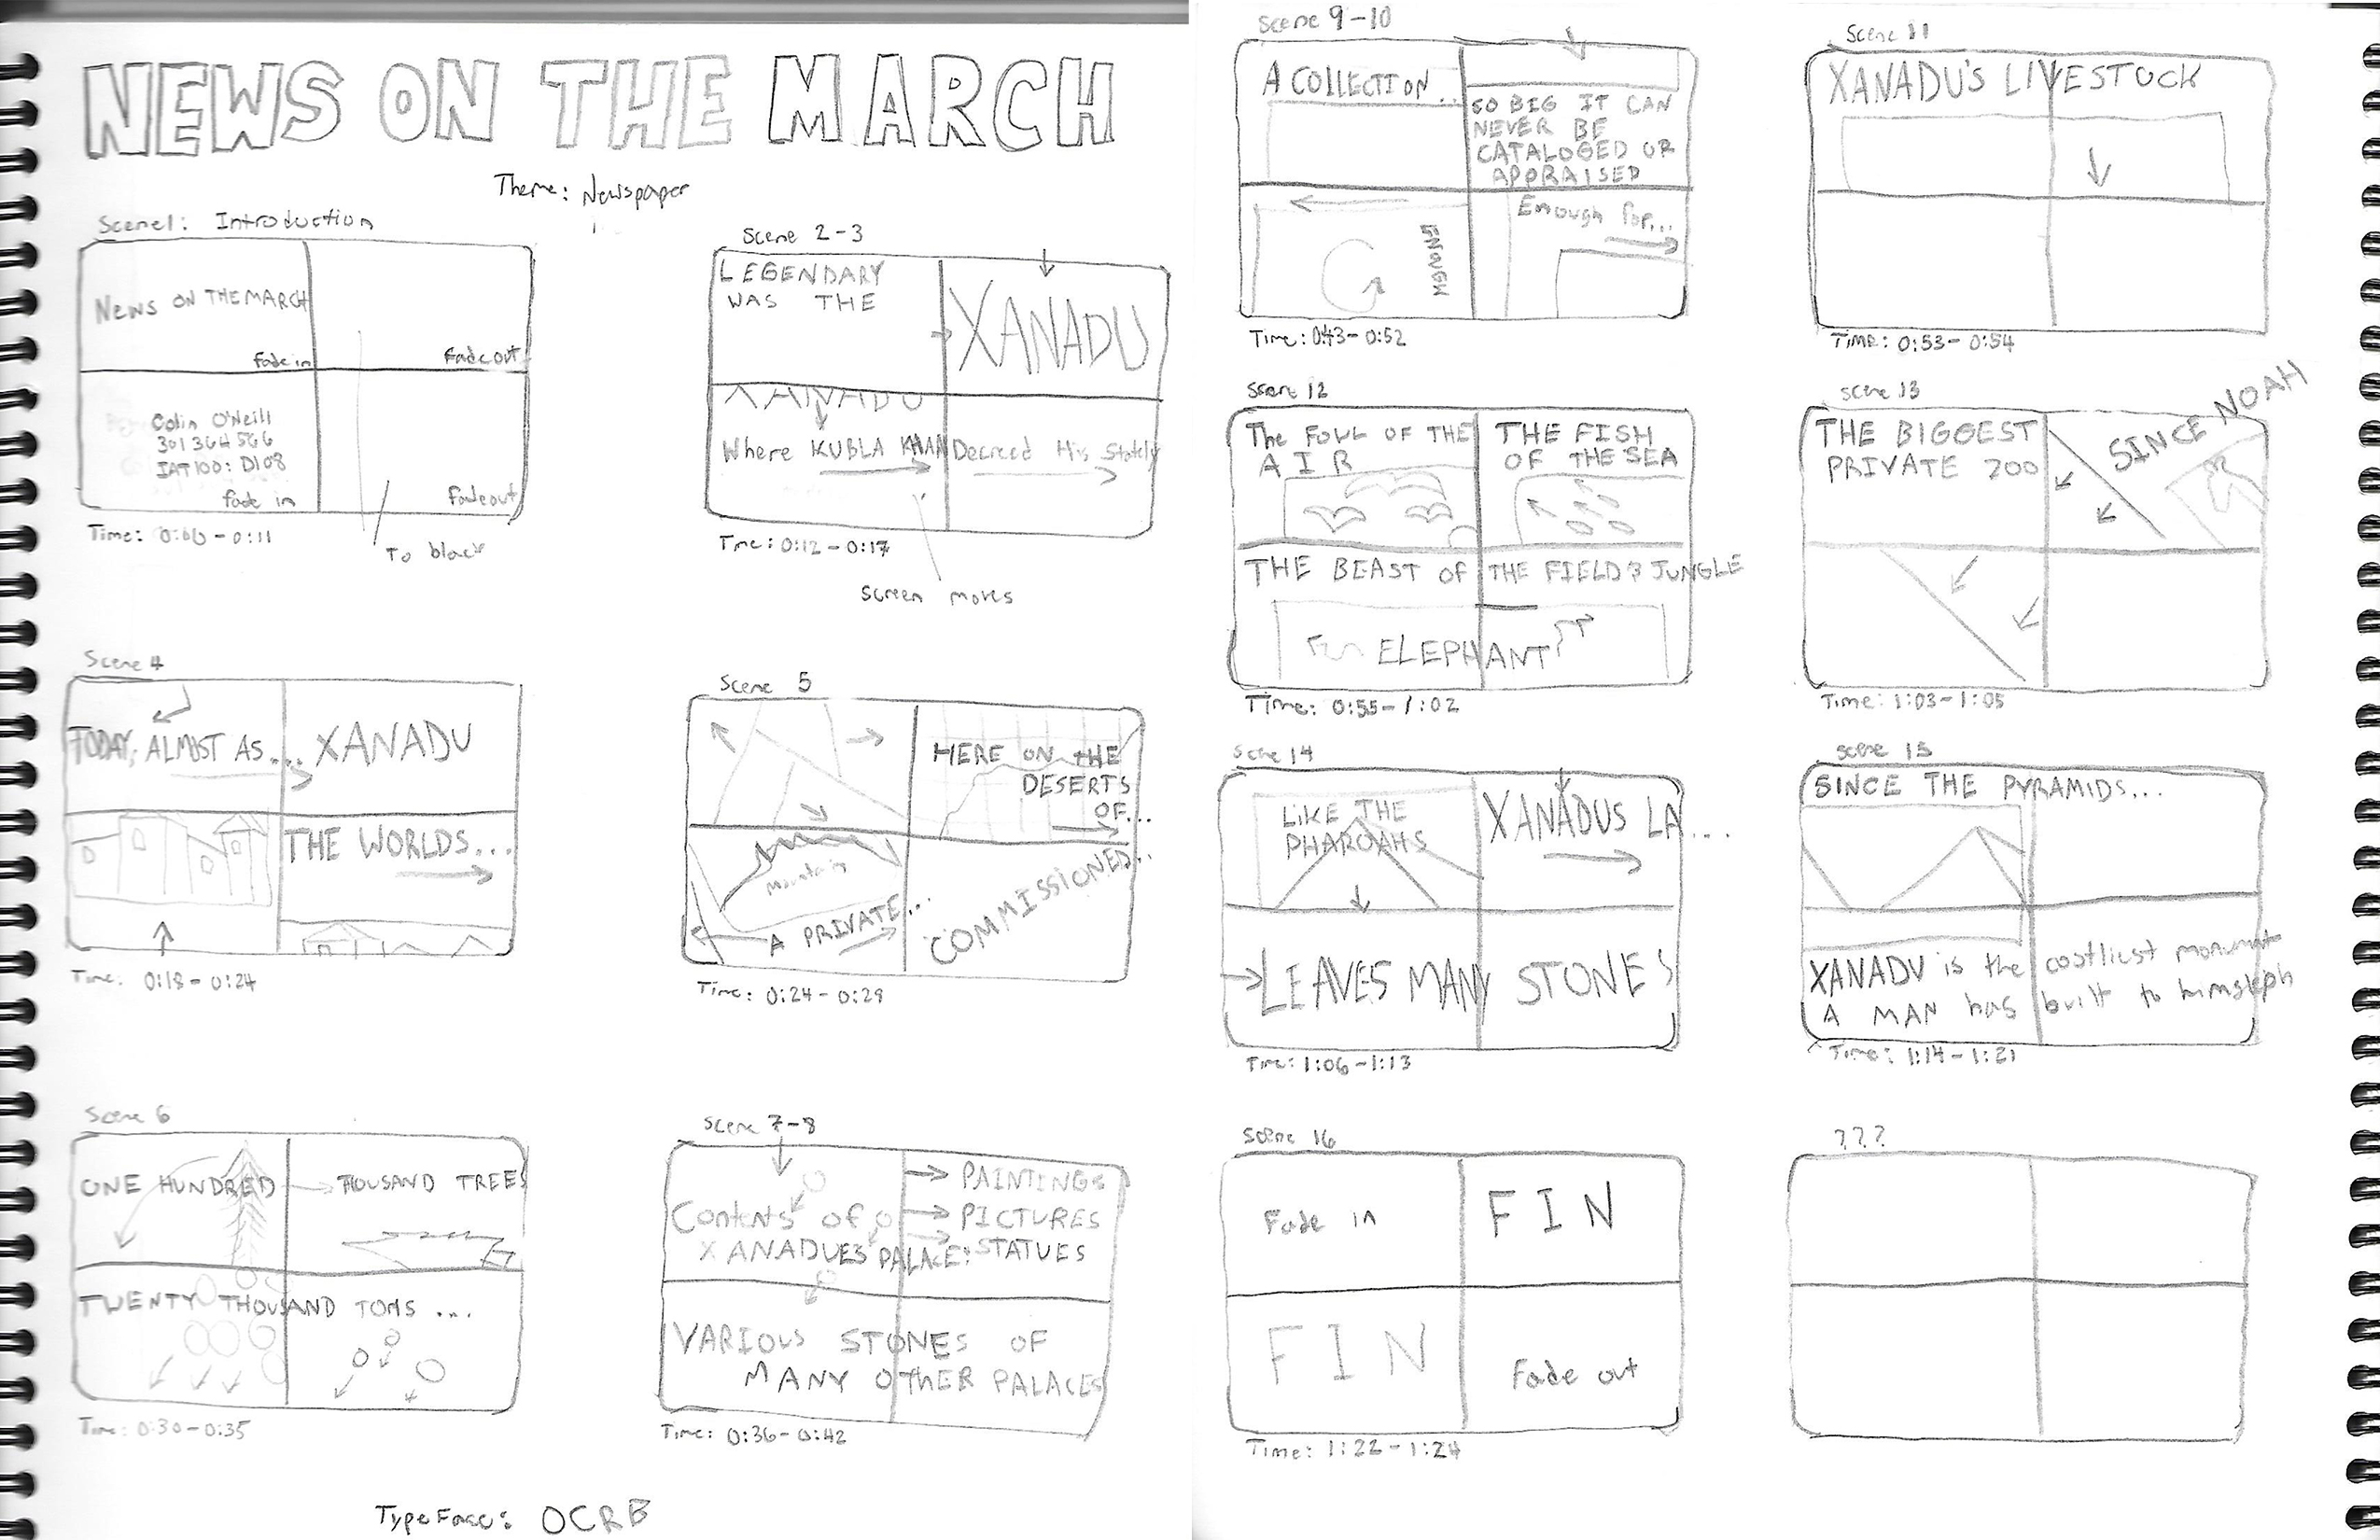 NEWS ON THE MARCH
Theme: Newspaper
Scene1: Introduction
News ON THE MARCH
Fade in
Fade out
Colin O'Neill
IAT100: D108
fade in
fadeout
To black
Scene 2-3
LEGENDARY
WAS THE
XANADU
XANADU
Where KUBLA KHAN
Decreed His Stately
Time: 0:12-0:17
Screen moves
Scene 4
TODAY, ALMOST AS...
XANADU
THE WORLDS...
Time: 0:18-0:24
Scene 5
HERE ON THE
DESERTS
OF...
mountain
A PRIVATE...
COMMISSIONED...
Time: 0:24-0:29
Scene 6
ONE HUNDRED
THOUSAND TREES
TWENTY THOUSAND TONS ....
Time: 0:30-0:35
Scene 7-8
Contents of
XANADUES PALACE:
PAINTINGS
PICTURES
STATUES
VARIOUS STONES OF
MANY OTHER PALACES
Time: 0:36-0:42
TypeFace: OCRB
Scene 9-10
A COLLECTION...
SO BIG IT CAN
NEVER BE
CATALOGED OR
APPRAISED
ENOUGH
Enough for...
Time: 0:43-0:52
Scene 11
XANADU'S LIVESTOCK
TIME: 0:53-0:54
Scene 12
The FOWL OF THE
AIR
THE FISH
OF THE SEA
THE BEAST OF THE FIELD & JUNGLE
ELEPHANT
Time: 0:55-1:02
Scene 13
THE BIGGEST
PRIVATE ZOO
SINCE NOAH
Time: 1:03-1:05
Scene 14
LIKE THE
PHAROAHS
XANADUS LA...
LEAVES MANY STONES
Time: 1:06-1:13
Scene 15
SINCE THE PYRAMIDS...
XANADU is the costliest monument
A MAN has built to himself
Time: 1:14-1:21
Scene 16
Fade in
FIN
FIN
Fade out
Time: 1:22-1:24
???